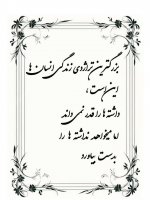 بزرگترین تراژدی زندگی انسان ها
این است،
داشته ها را قدر نمی داند
اما میخواهد نداشته ها را
بدست بیاورد